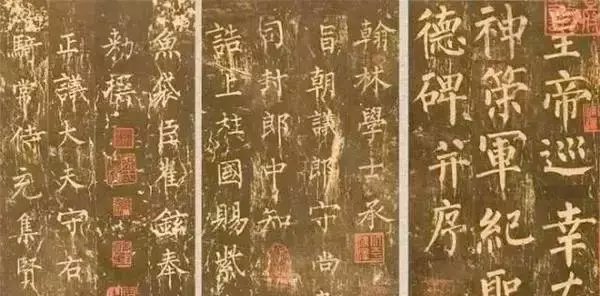 皇帝巡幸
神策軍紀聖
德碑并序
翰林學士承
旨朝議郎守尚
司封郎中知
誥上柱國賜紫
魚袋臣崔鉉奉
勑撰
正議大夫守右
騎常侍充集賢